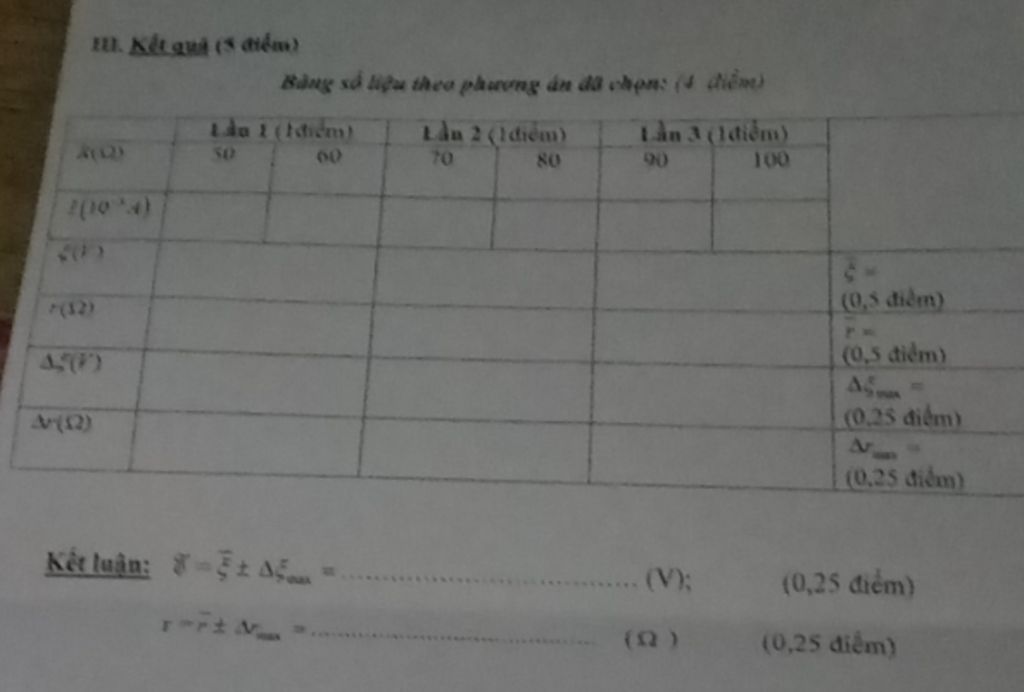 III. Kết quả (5 điểm)
Bảng số liệu theo phương án đã chọn: (4 điểm)
Lần 1 (1điểm) Lần 2 (1điểm) Lần 3 (1điểm)
R(Ω) 50 60 70 80 90 100
I(10⁻³A)
ξ(V) ξ̅ =
(0,5 điểm)
r(Ω) r̅ =
(0,5 điểm)
Δξ(V) Δξmax =
(0,25 điểm)
Δr(Ω) Δrmax =
(0,25 điểm)
Kết luận: ξ = ξ̅ ± Δξmax = .................................... (V); (0,25 điểm)
r = r̅ ± Δrmax = .................................... (Ω) (0,25 điểm)